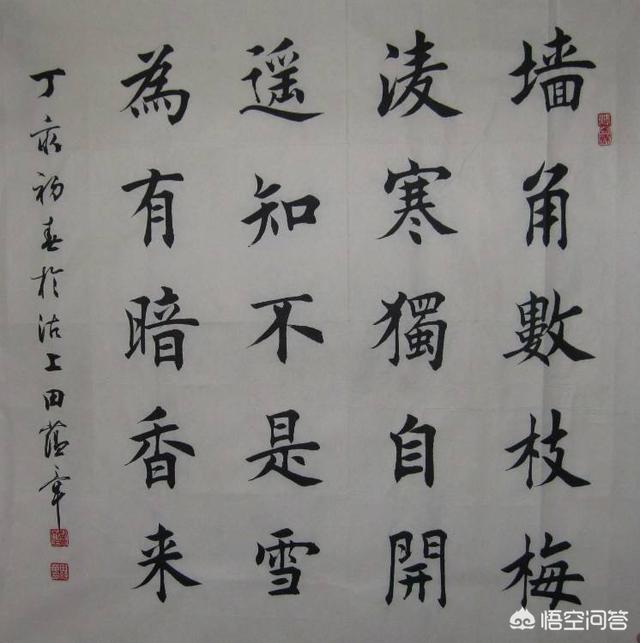 墙角數枝梅
凌寒獨自開
遥知不是雪
為有暗香来
丁亥初春於沽上田蕴章
悟空问答